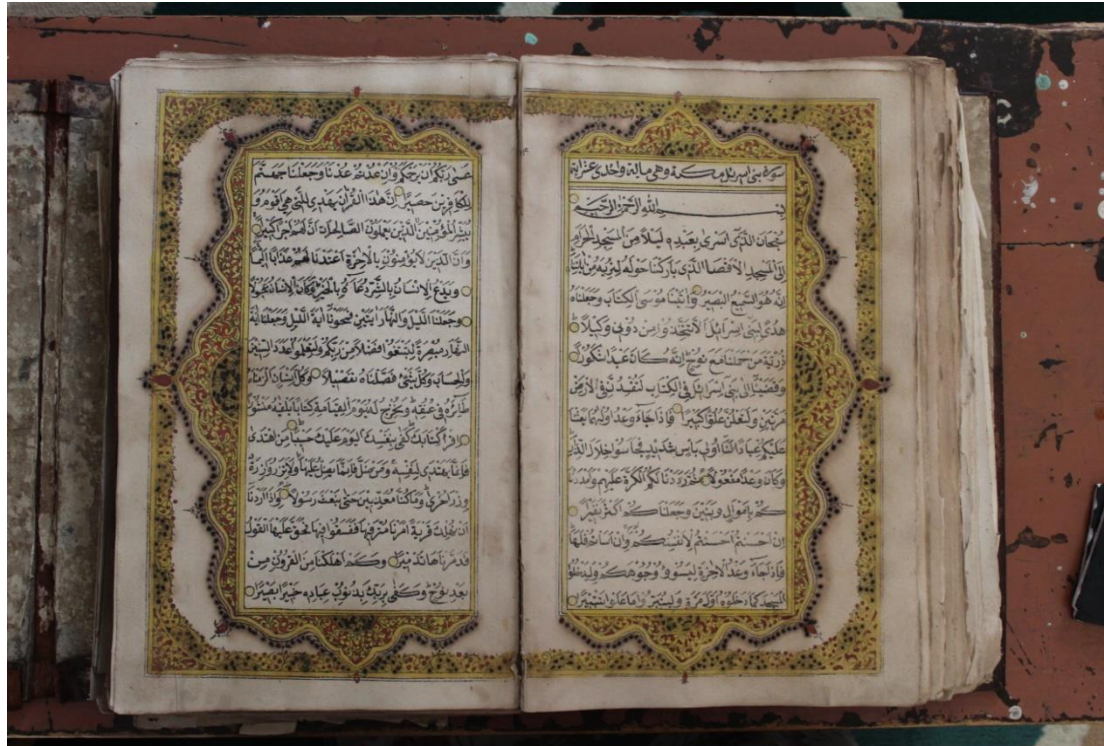 سورة بنى اسرئل مكية وهى مائة واحدى عشراية
بسم الله الرحمن الرحيم
سبحان الذى اسرى بعبده ليلا من المسجد الحرام
الى المسجد الاقصا الذى باركنا حوله لنريه من اياتنا
انه هو السميع البصير واتينا موسى الكتاب وجعلناه
هدى لبنى اسرائل الا تتخذوا من دونى وكيلا
ذرية من حملنا مع نوح انه كان عبدا شكورا
وقضينا الى بنى اسرائل فى الكتاب لتفسدن فى الارض
مرتين ولتعلن علوا كبيرا فاذا جاء وعد اوليهما بعثنا
عليكم عبادا لنا اولى باس شديد فجاسوا خلال الديار
وكان وعدا مفعولا ثم رددنا لكم الكرة عليهم وامددنا
كم باموال وبنين وجعلناكم اكثر نفيرا
ان احسنتم احسنتم لانفسكم وان اساتم فلها
فاذا جاء وعد الاخرة ليسوؤ وجوهكم وليدخلوا
المسجد كما دخلوه اول مرة وليتبروا ما علوا تتبيرا
عسى ربكم ان يرحمكم وان عدتم عدنا وجعلنا جهنم
للكافرين حصيرا ان هذا القران يهدى للتى هى اقوم و
يبشر المؤمنين الذين يعملون الصالحات ان لهم اجرا كبيرا
وان الذين لا يؤمنون بالاخرة اعتدنا لهم عذابا اليما
ويدع الانسان بالشر دعاءه بالخير وكان الانسان عجولا
وجعلنا الليل والنهار ايتين فمحونا اية الليل وجعلنا اية
النهار مبصرة لتبتغوا فضلا من ربكم ولتعلموا عدد السنين
والحساب وكل شئ فصلناه تفصيلا وكل انسان الزمناه
طائره فى عنقه ونخرج له يوم القيامة كتابا يلقيه منشورا
اقرا كتابك كفى بنفسك اليوم عليك حسيبا من اهتدى
فانما يهتدى لنفسه ومن ضل فانما يضل عليها ولا تزر وازرة
وزر اخرى وما كنا معذبين حتى نبعث رسولا واذا اردنا
ان نهلك قرية امرنا مترفيها ففسقوا فيها فحق عليها القول
فدمرناها تدميرا وكم اهلكنا من القرون من
بعد نوح وكفى بربك بذنوب عباده خبيرا بصيرا